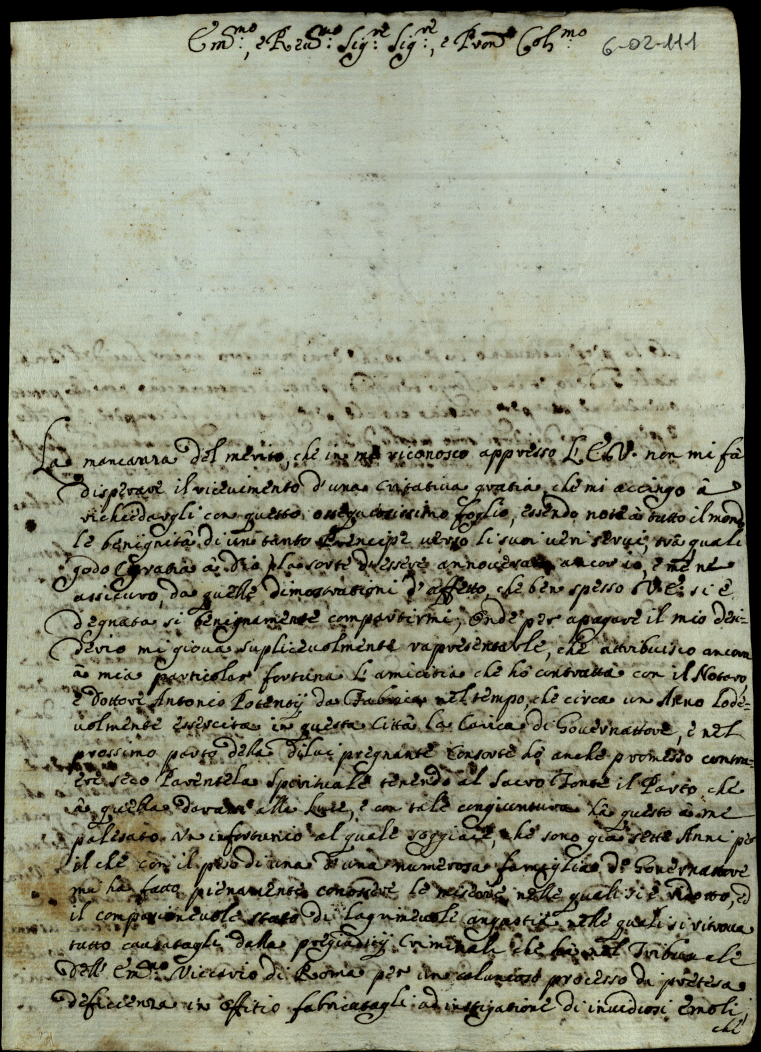 Em.mo, e Reu.mo Sig.re Sig.re, e Pron Col.mo 6-02-111
La mancanza del merito, che in me riconosco appresso L'E.V. non mi fà
disperare il ricevimento d'una caritativa gratia, che mi accingo à
richiedargli con questo ossequiosissimo foglio, essendo note à tutto il mondo
le benignità di un tanto Prencipe verso li suoi veri servi, trà quali
godo gratia à Dio la sorte d'essere annoverato ancor io, e me ne
assicuro, da quelle dimostrationi d'affetto, che ben spesso V.E. si è
degnata si benignamente compartirmi; Onde per apagare il mio desi-
derio mi giova suplicevolmente rapresentarle, che attribuisco ancora
à mia particolar fortuna L'amicitia che hò contratta con il Notaro,
e Dottore Antonio Potentij da Fabrica nel tempo, che circa un Anno lode-
volmente essercita in questa Città la Carica di Governattore, e nel
prossimo parto della di lui pregnante Consorte hò anche promesso contra-
ere seco Parentela Spirituale tenendo al Sacro Fonte il Parto, che
à quella darassi alla Luce, e con tale congiuntura hà questo à me
palesato un infortunio al quale soggiace, che sono già sette Anni per
il che con il peso di una d'una numerosa famiglia di Governattore
mi hà fatto pienamente conoscere le miserie nelle quali si è ridotto, ed
il compasionevole stato di lagrimevole angustie nelle quali si ritrova
tutto causatagli dalla pregiuditij Criminali che hà nel Tribunale
dell'Em.mo Viccario di Roma per un calunioso processo di pretesa
deficienza in offitio fabricatagli ad instigatione di invidiosi emoli,
che